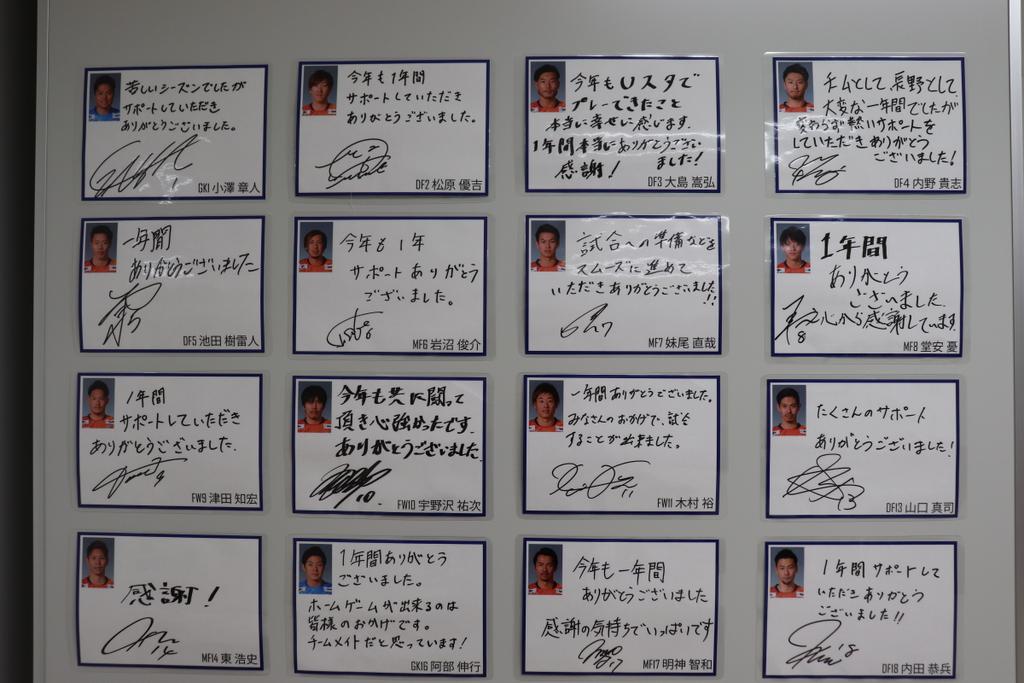 苦しいシーズンでしたが
サポートしていただき
ありがとうございました。
1
GK1 小澤 章人
今年も1年間
サポートしていただき
ありがとうございました。
DF2 松原 優吉
今年もUスタで
プレーできたこと
本当に幸せに感じます。
1年間本当にありがとうござい
ました!
感謝!
DF3 大島 嵩弘
チームとして、長野として、
大変な一年間でしたが
変わらず熱いサポートを
していただきありがとう
ございました!
DF4 内野 貴志
一年間
ありがとうございました
DF5 池田 樹雷人
今年も1年
サポートありがとう
ございました。
MF6 岩沼 俊介
試合への準備などを
スムーズに進めて
いただきありがとうございました
!!
MF7 妹尾 直哉
1年間
ありがとう
ございました。
心から感謝しています。
8
MF8 堂安 憂
1年間
サポートしていただき
ありがとうございました。
9
FW9 津田 知宏
今年も共に闘って
頂き心強かったです。
ありがとうございました。
10
FW10 宇野沢 祐次
一年間ありがとうございました。
みなさんのおかげで、試合
することが出来ました。
11
FW11 木村 裕
たくさんのサポート
ありがとうございました!
13
DF13 山口 真司
感謝!
14
MF14 東 浩史
1年間ありがとう
ございました。
ホームゲームが出来るのは
皆様のおかげです。
チームメイトだと思っています!
GK16 阿部 伸行
今年も一年間
ありがとうございました
感謝の気持ちでいっぱいです
17
MF17 明神 智和
1年間サポートして
いただきありがとう
ございました!!
18
DF18 内田 恭兵